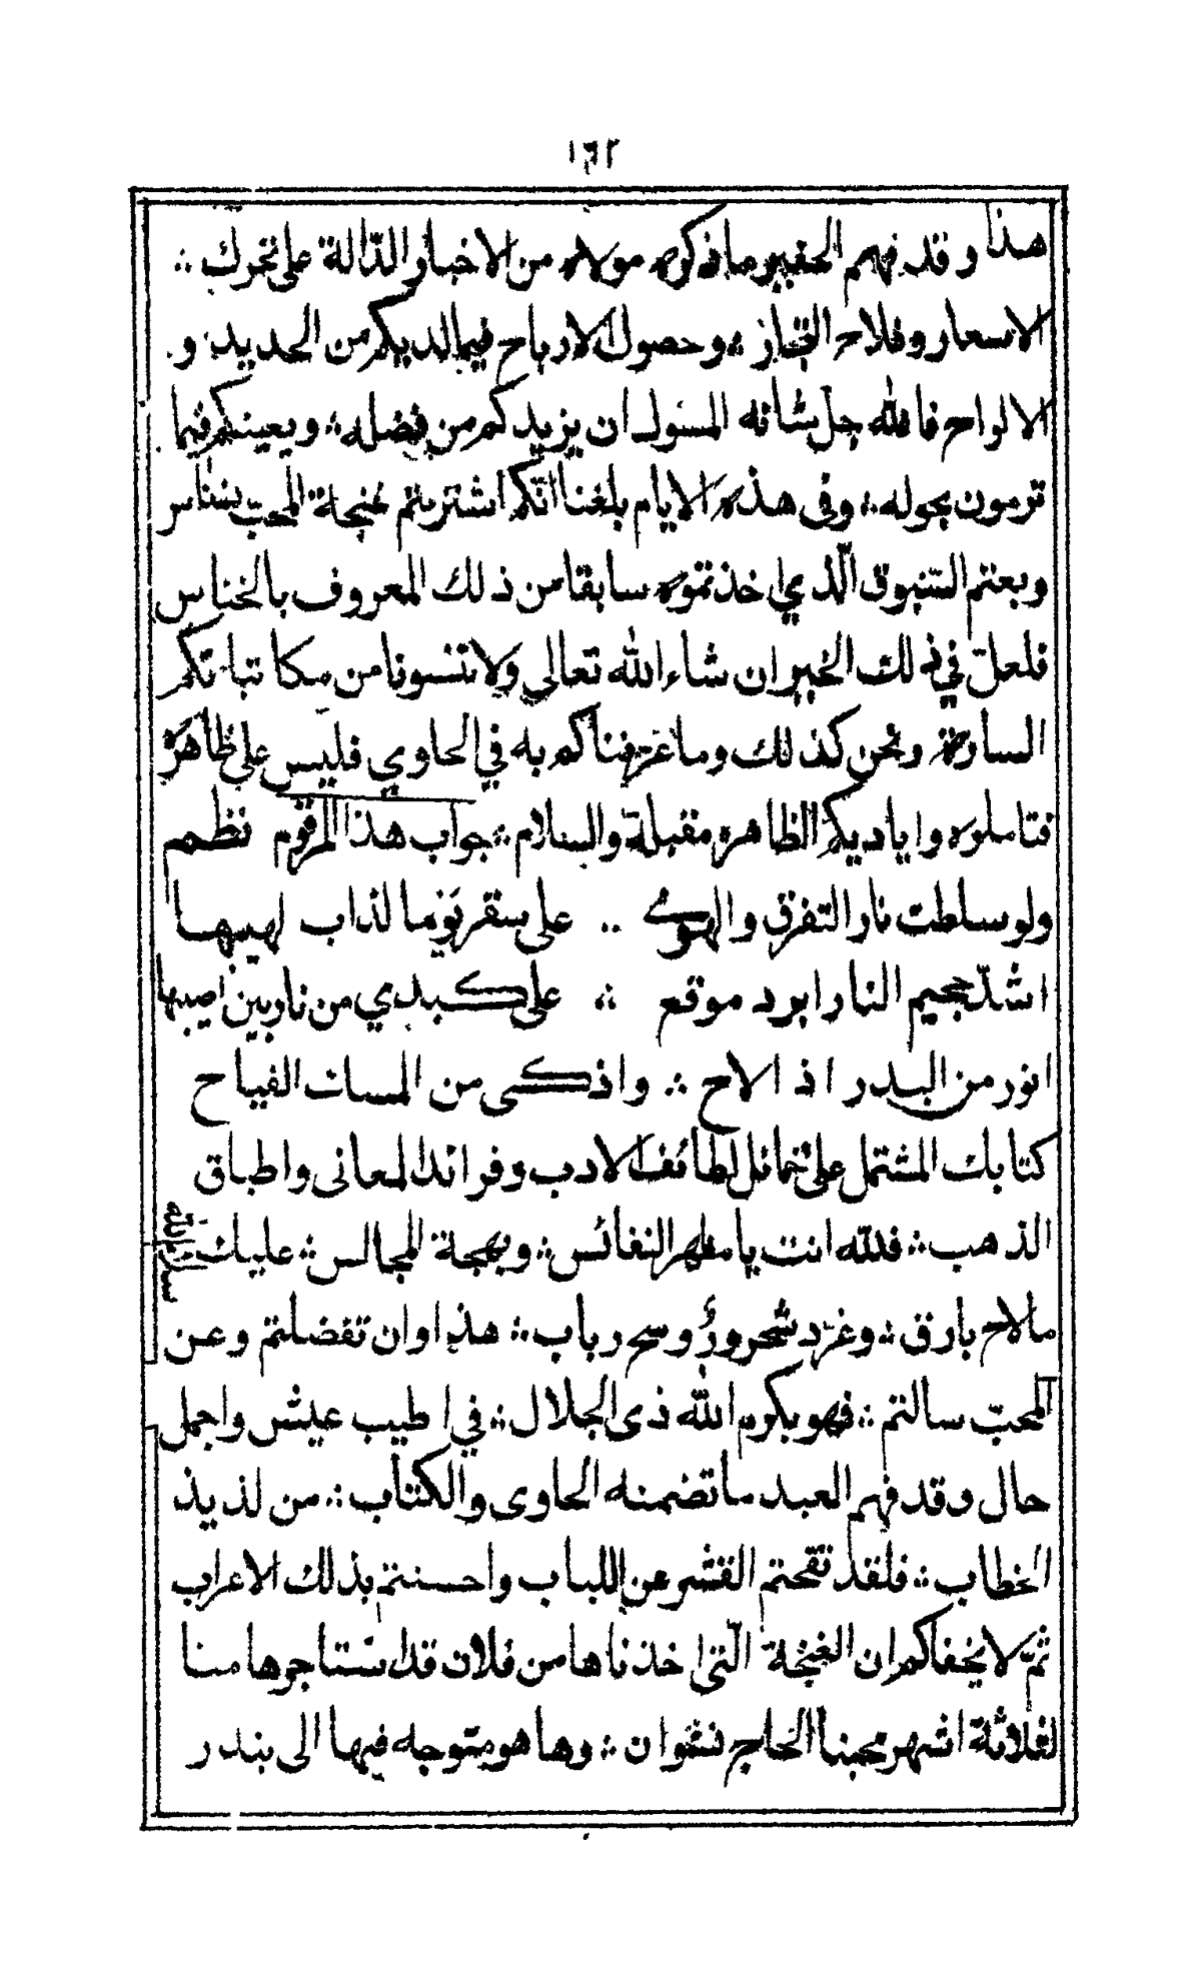 ١٦٢
هذا وقد فهم الحقير ما ذكره مولاه من الاخبار الدّالة على تحرك ؞
الاسعار وفلاح التجار ؞ وحصول الارباح فيما لديكم من الحديد و
الالواح فالله جل شانه المسول ان يزيدكم من فضله ؞ ويعينكم فيما
ترمون بحوله ؞ وفى هذه الايام بلغنا انكم اشتريتم غنجة المحب بسناس
وبعتم السّنبوق الّذي اخذتموه سابقا من ذلك المعروف بالخناس
فلعل في ذلك الخير ان شاء الله تعالي ولا تنسونا من مكاتباتكم
السارة ونحن كذلك وما عرّفناكم به في الحاوي فليس على ظاهرة
فتاملوه واياديكم الظاهرة مقبلة والسلام ؞ جواب هذا المرقوم نظم
ولو سلطت نار التفرق والهوي ؞ على سقر يوما لذاب لهيبها
اشدّ جحيم النار ابرد موقع ؞ على كبدي من نار بين اصيبها
انور من البدر اذ الاح ؞ واذكى من المسك الفياح
كتابك المشتمل على خمائل لطائف الادب وفرائد المعانى واطباق
الذهب ؞ فلله انت يا مظهر النفائس ؞ وبهجة المجالس ؞ عليك سلام الله
ما لاح بارق ؞ وغرّد شحرورٌ وسح رباب ؞ هذا وان تفضلتم وعن
المحبّ سالتم ؞ فهو بكرم الله ذى الجلال ؞ في اطيب عيش واجمل
حال وقد فهم العبد ما تضمنه الحاوى والكتاب ؞ من لذيذ
الخطاب ؞ فلقد نقحتم القشر عن اللباب واحسنتم بذلك الاعراب
ثمّ لا يخفاكم ان الغنجة الّتي اخذناها من فلان قد استاجرها منا
لثلاثة اشهر محبنا الحاج نشوان ؞ وها هو متوجه فيها الى بندر